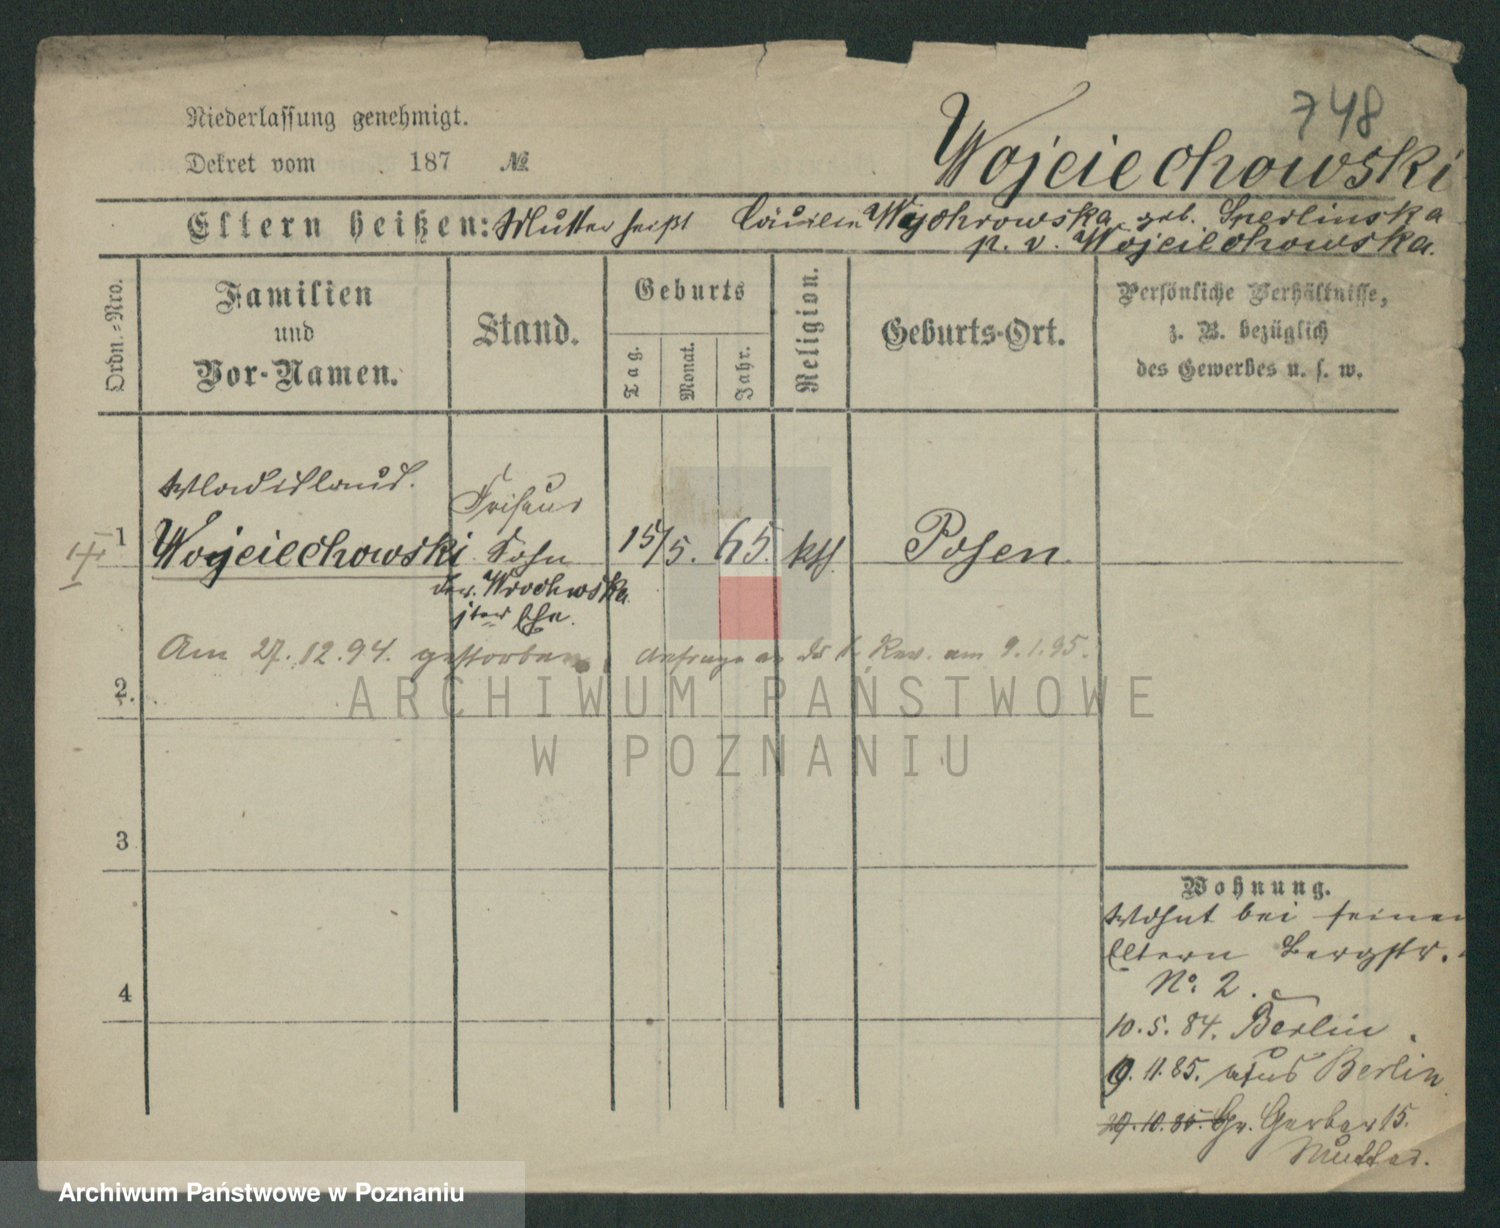 748
Niederlassung genehmigt.
Dekret vom 187 №
Wojciechowski
Eltern heißen: Mutter heißt Wojchrowska geb. Sperlinska
p. v. Wojciechowska.
Ordn.-Nro.
Familien
und
Vor-Namen.
Stand.
Geburts
Tag.
Monat.
Jahr.
Religion.
Geburts-Ort.
Persönliche Verhältnisse,
z. B. bezüglich
des Gewerbes u. s. w.
Wladislaus.
Friseur
1 Wojciechowski Sohn 15/5. 65. kth. Posen
der
Ehe.
Am 27.12.94. gestorben, Anfrage am 9.1.95.
2.
ARCHIWUM PAŃSTWOWE
W POZNANIU
3
Wohnung.
Wohnt bei seinen
Eltern Bergstr.
4
No. 2.
10.5.84. Berlin.
9.11.85. aus Berlin
29.10.85. Gr. Gerber 15.
Mutter.
Archiwum Państwowe w Poznaniu